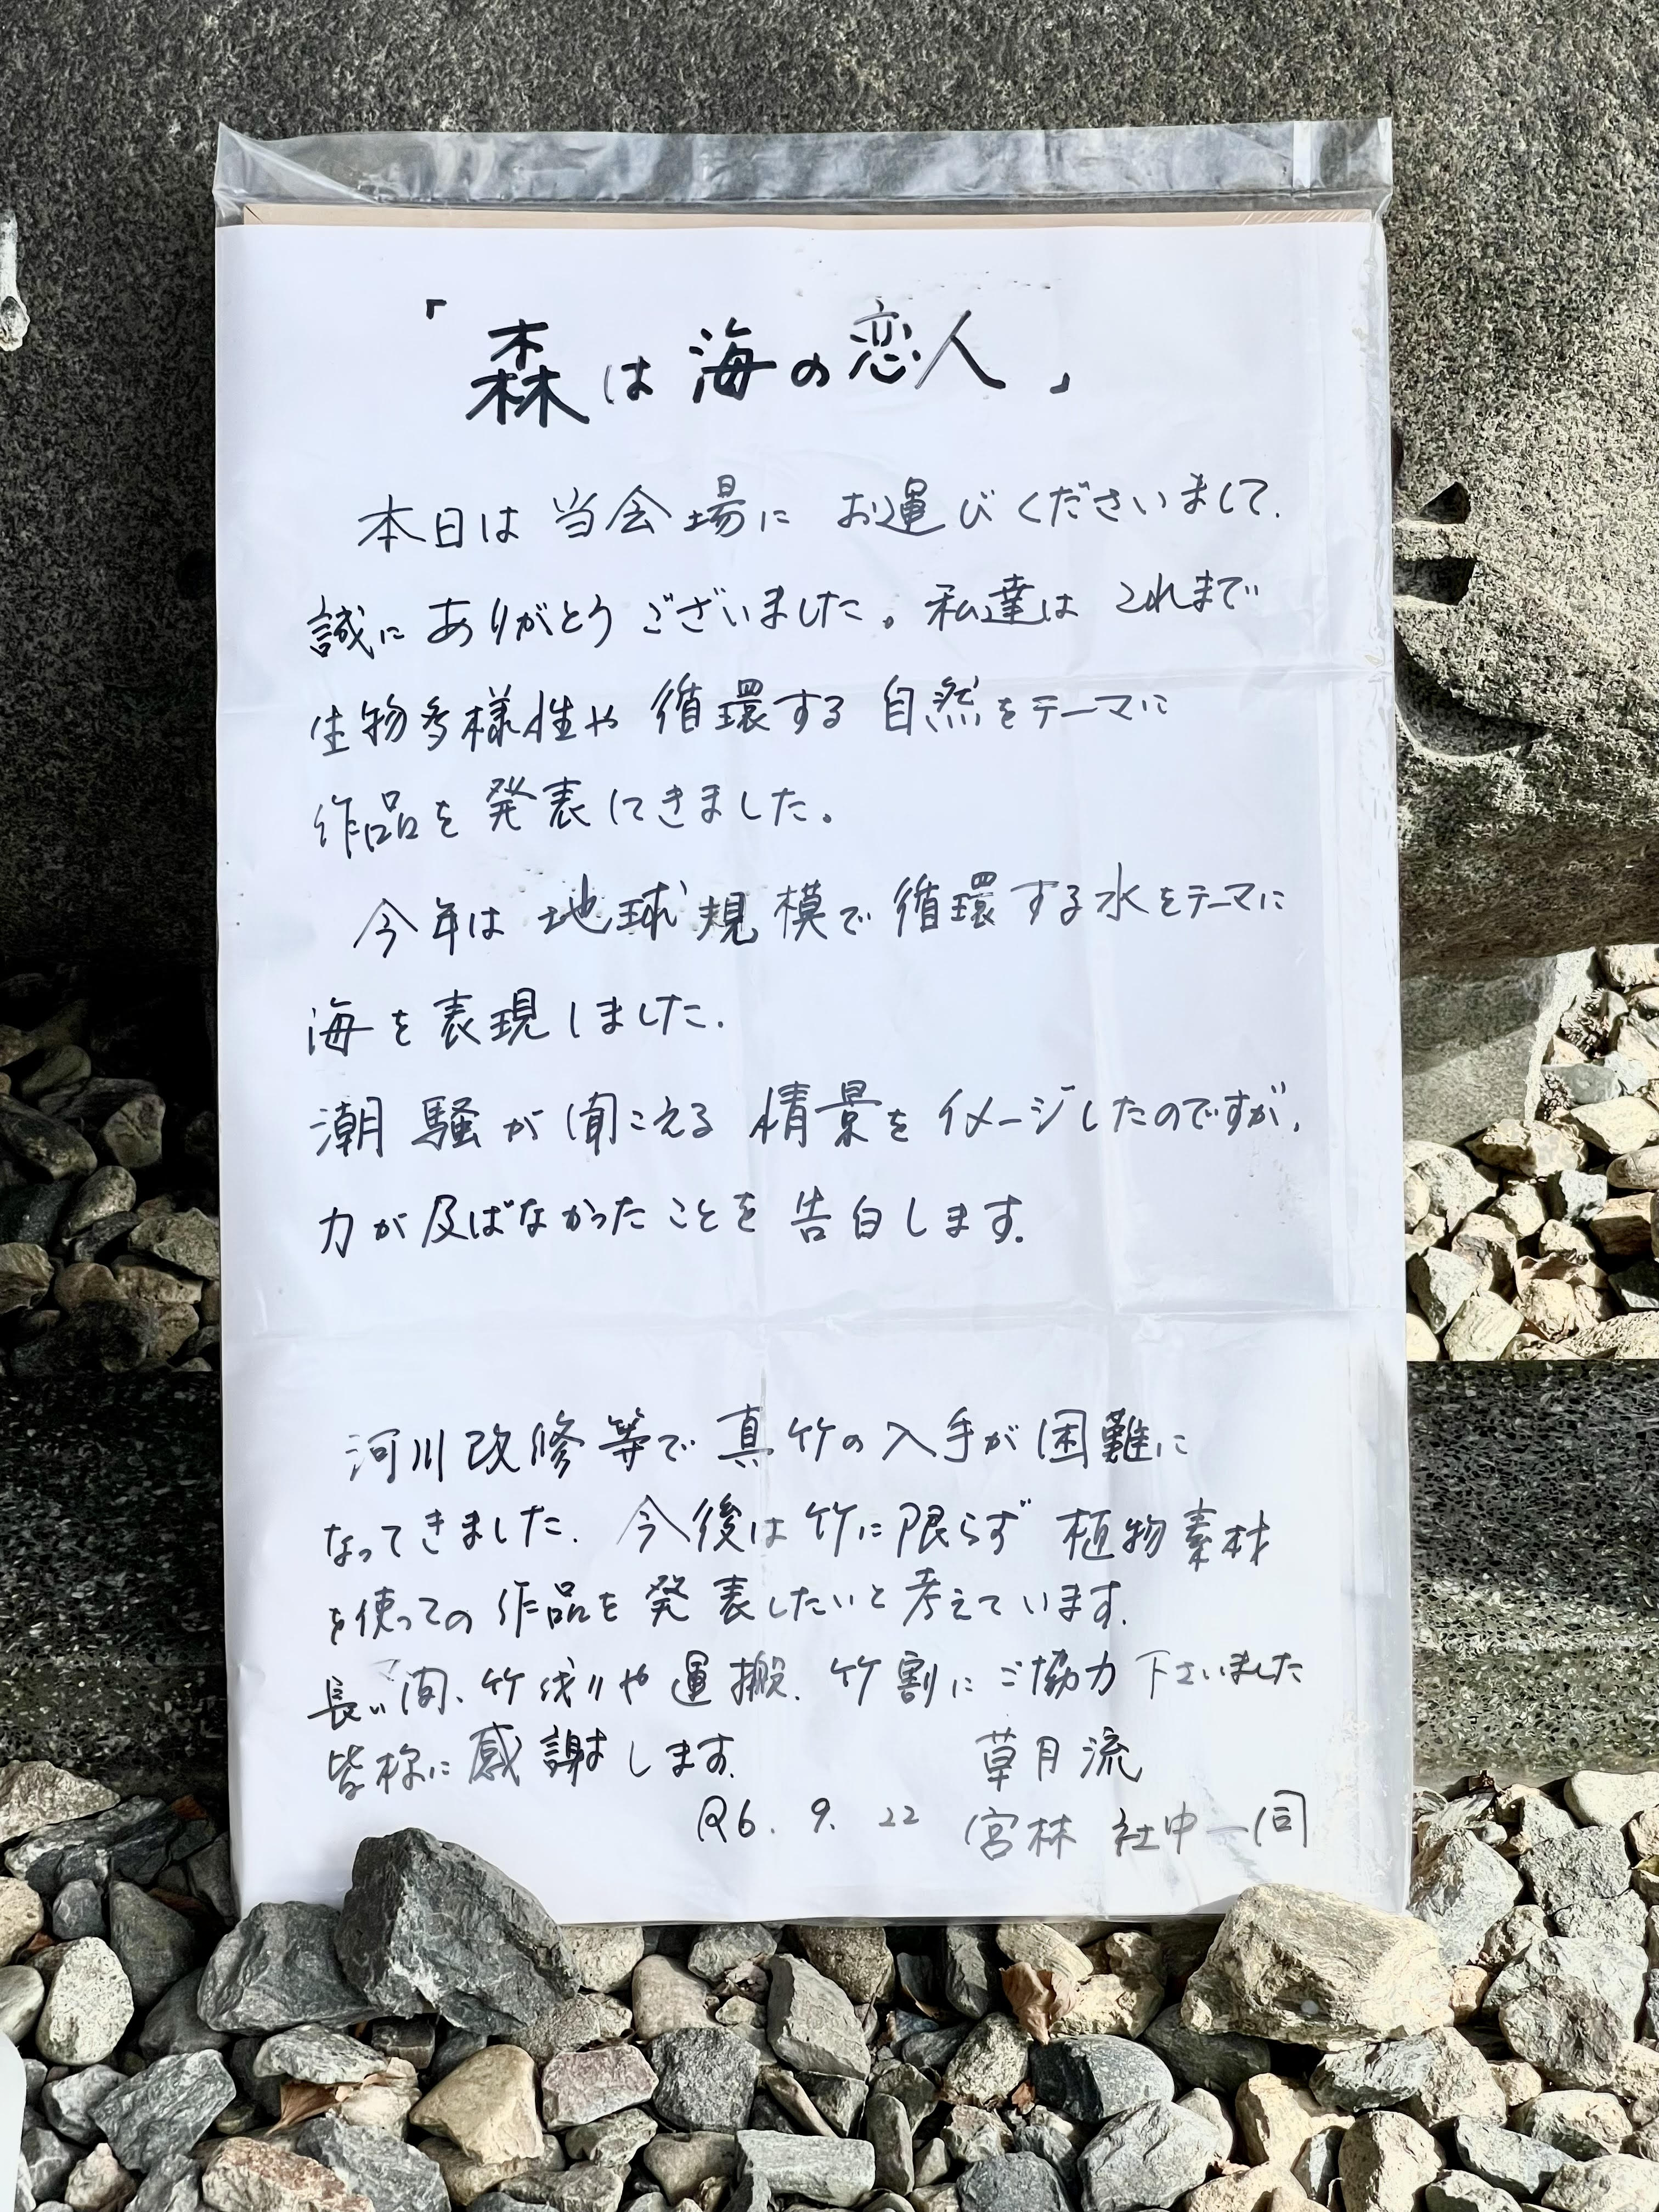 「森は海の恋人」
本日は当会場にお運びくださいまして.
誠にありがとうございました。私達はこれまで
生物多様性や循環する自然をテーマに
作品を発表してきました。
今年は地球規模で循環する水をテーマに
海を表現しました.
潮騒が聞こえる情景をイメージしたのですが,
力が及ばなかったことを告白します.
河川改修等で真竹の入手が困難に
なってきました. 今後は竹に限らず植物素材
を使っての作品を発表したいと考えています.
長い間、竹伐りや運搬. 竹割にご協力下さいました
皆様に感謝します.
草月流
R6. 9. 22 宮林 社中一同